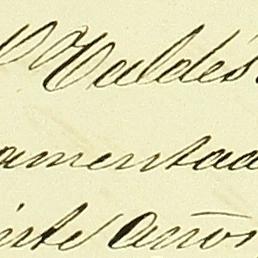 Valdés
amentad
inte años